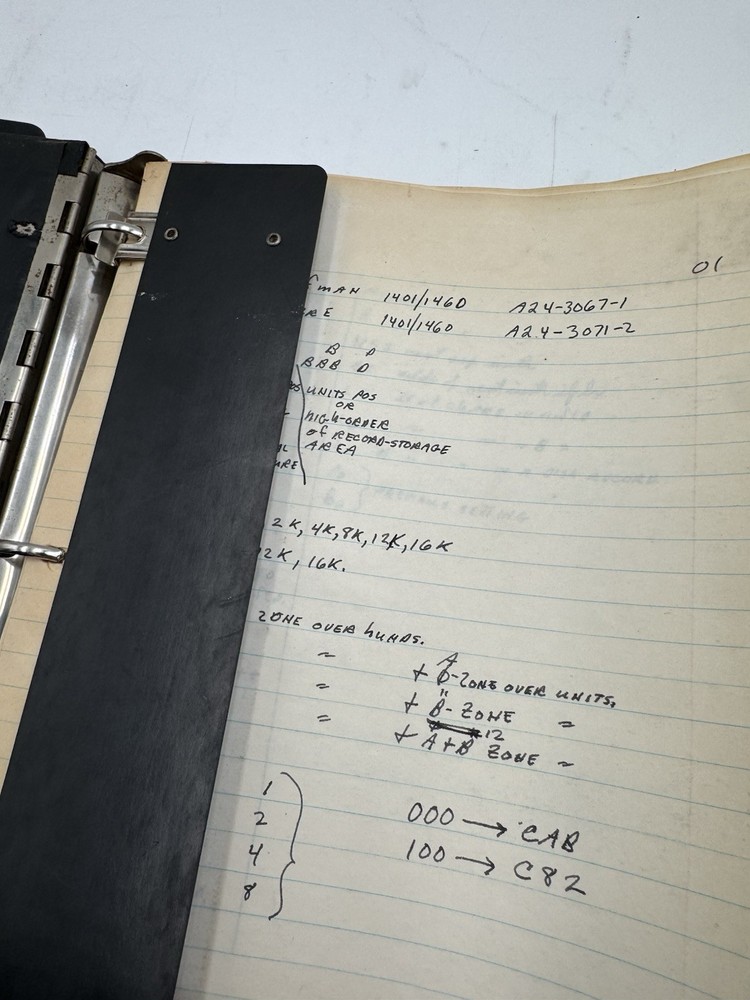 01
MAN 1401/1460 A24-3067-1
RE 1401/1460 A24-3071-2
B D
BBB D
UNITS POS
OR
HIGH-ORDER
OF RECORD-STORAGE
AREA
URE
2K, 4K, 8K, 12K, 16K
12K, 16K.
ZONE OVER HUNDS.
" A
" + B-ZONE OVER UNITS.
" + B-ZONE "
12
" + A+B ZONE "
1
2 000 → CAB
4 100 → C82
8